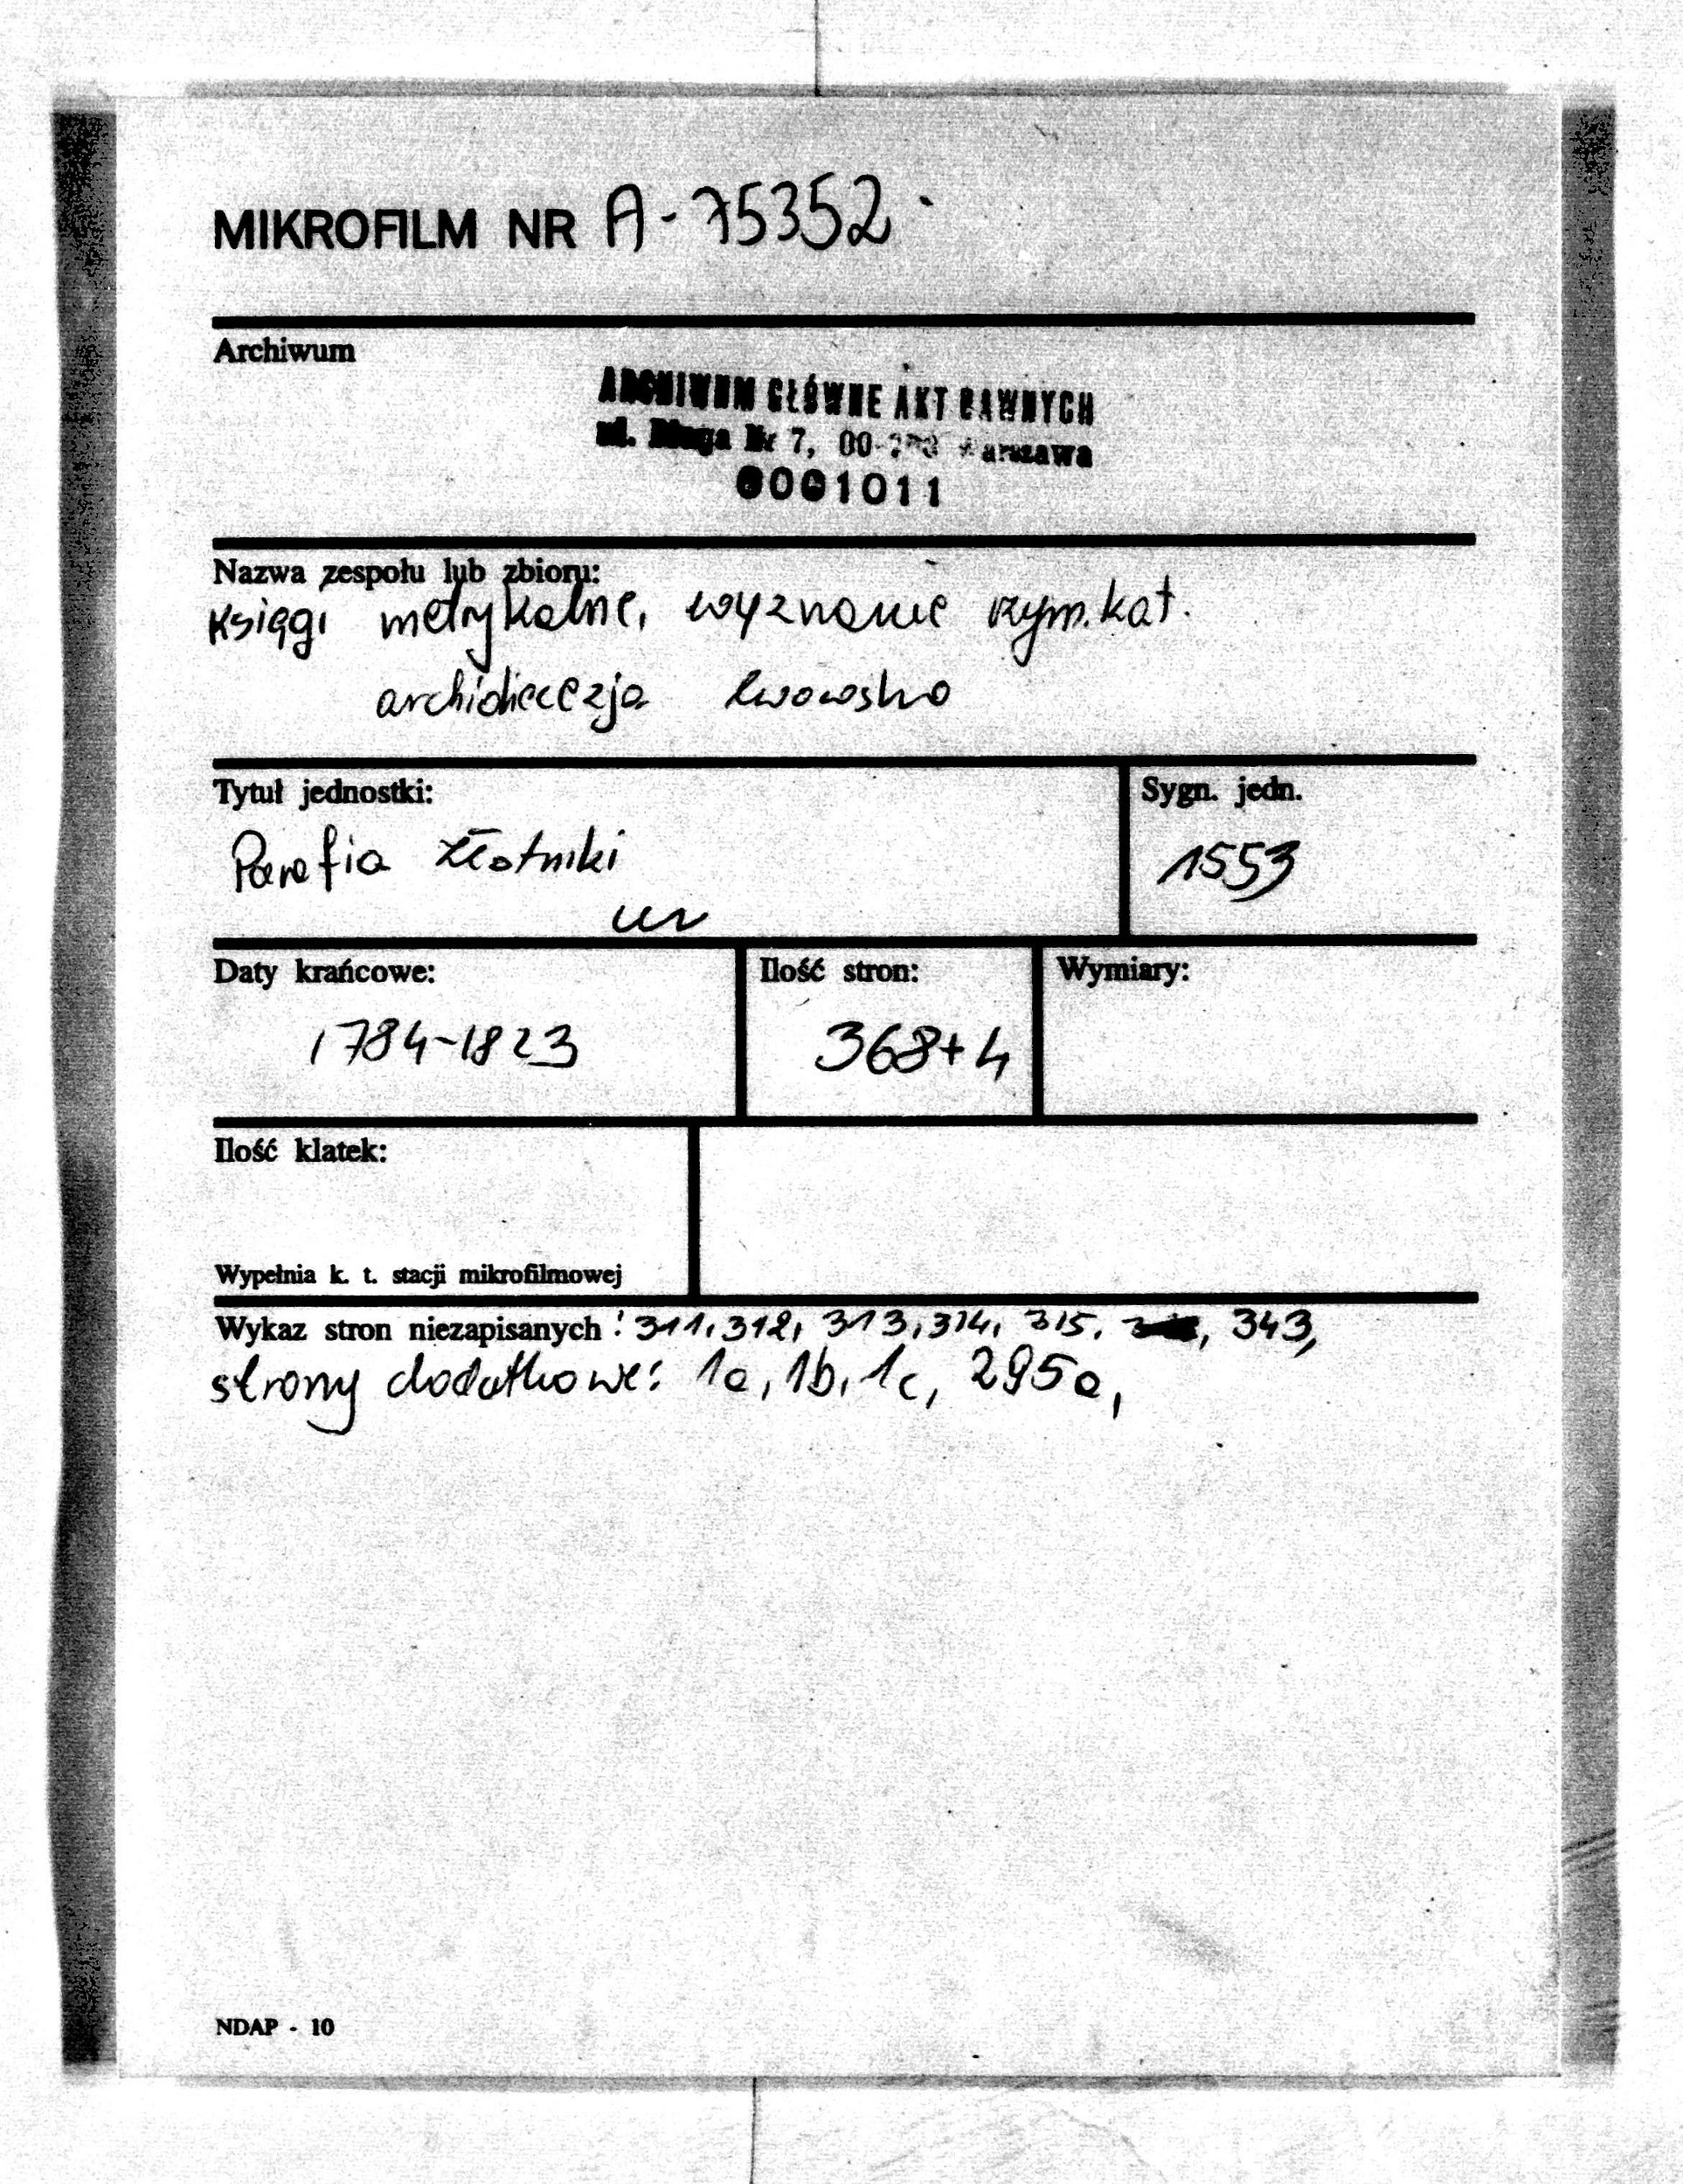 MIKROFILM NR A-75352
Archiwum
ARCHIWUM GŁÓWNE AKT DAWNYCH
ul. Długa Nr 7, 00- Warszawa
0001011
Nazwa zespołu lub zbioru:
Księgi metrykalne, wyznanie rzym.kat.
archidiecezja lwowska
Tytuł jednostki:
Sygn. jedn.
Parafia Złotniki
1553
ur
Daty krańcowe:
Ilość stron:
Wymiary:
1784-1823
368+4
Ilość klatek:
Wypełnia k. t. stacji mikrofilmowej
Wykaz stron niezapisanych: 311, 312, 313, 314, 315, 343,
strony dodatkowe: 1a, 1b, 1c, 295a,
NDAP - 10